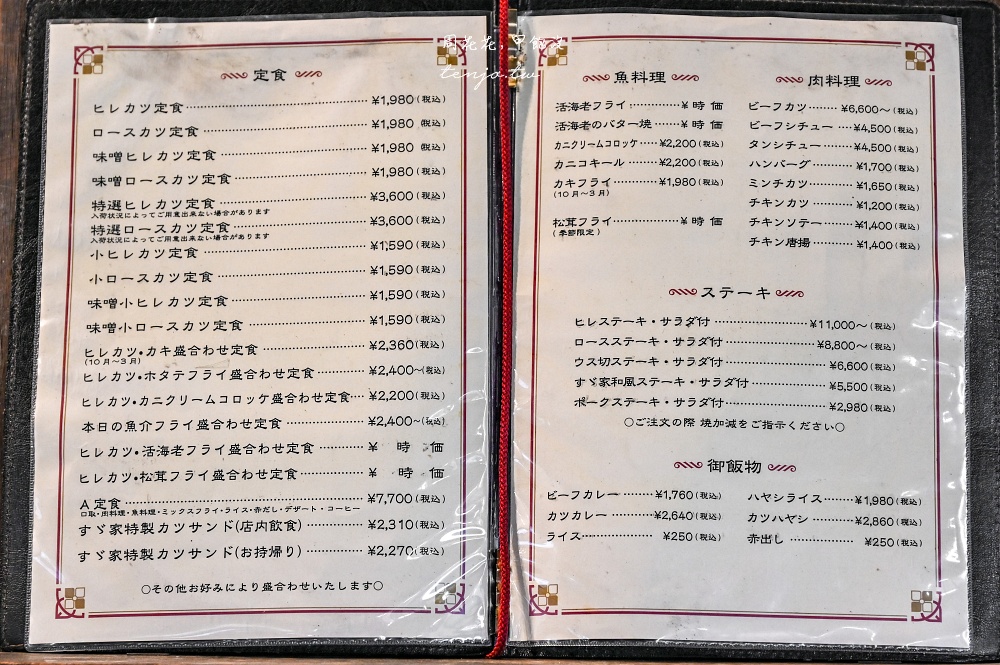 周花花，甲飽没
tenjo.tw
定食
ヒレカツ定食 ¥1,980(税込)
ロースカツ定食 ¥1,980(税込)
味噌ヒレカツ定食 ¥1,980(税込)
味噌ロースカツ定食 ¥1,980(税込)
特選ヒレカツ定食 ¥3,600(税込)
入荷状況によってご用意出来ない場合があります
特選ロースカツ定食 ¥3,600(税込)
入荷状況によってご用意出来ない場合があります
小ヒレカツ定食 ¥1,590(税込)
小ロースカツ定食 ¥1,590(税込)
味噌小ヒレカツ定食 ¥1,590(税込)
味噌小ロースカツ定食 ¥1,590(税込)
ヒレカツ・カキ盛合わせ定食 ¥2,360(税込)
(10月〜3月)
ヒレカツ・ホタテフライ盛合わせ定食 ¥2,400〜(税込)
ヒレカツ・カニクリームコロッケ盛合わせ定食 ¥2,200(税込)
本日の魚介フライ盛合わせ定食 ¥2,400〜(税込)
ヒレカツ・活海老フライ盛合わせ定食 ¥ 時 価
ヒレカツ・松茸フライ盛合わせ定食 ¥ 時 価
A定食 ¥7,700(税込)
口取・肉料理・魚料理・ミックスフライ・ライス・赤だし・デザート・コーヒー
すゞ家特製カツサンド(店内飲食) ¥2,310(税込)
すゞ家特製カツサンド(お持帰り) ¥2,270(税込)
〇その他お好みにより盛合わせいたします〇
魚料理
活海老フライ ¥ 時 価
活海老のバター焼 ¥ 時 価
カニクリームコロッケ ¥2,200(税込)
カニコキール ¥2,200(税込)
カキフライ ¥1,980(税込)
(10月〜3月)
松茸フライ ¥ 時 価
(季節限定)
肉料理
ビーフカツ ¥6,600〜(税込)
ビーフシチュー ¥4,500(税込)
タンシチュー ¥4,500(税込)
ハンバーグ ¥1,700(税込)
ミンチカツ ¥1,650(税込)
チキンカツ ¥1,200(税込)
チキンソテー ¥1,400(税込)
チキン唐揚 ¥1,400(税込)
ステーキ
ヒレステーキ・サラダ付 ¥11,000〜(税込)
ロースステーキ・サラダ付 ¥8,800〜(税込)
ウス切ステーキ・サラダ付 ¥6,600(税込)
すゞ家和風ステーキ・サラダ付 ¥5,500(税込)
ポークステーキ・サラダ付 ¥2,980(税込)
〇ご注文の際 焼加減をご指示ください〇
御飯物
ビーフカレー ¥1,760(税込)
カツカレー ¥2,640(税込)
ライス ¥250(税込)
ハヤシライス ¥1,980(税込)
カツハヤシ ¥2,860(税込)
赤出し ¥250(税込)